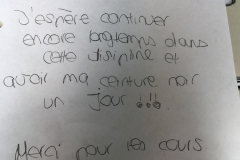 J'espère continuer
encore longtemps dans
cette disipline et
avoir ma ceinture noir
un jour !!!
Merci pour les cours